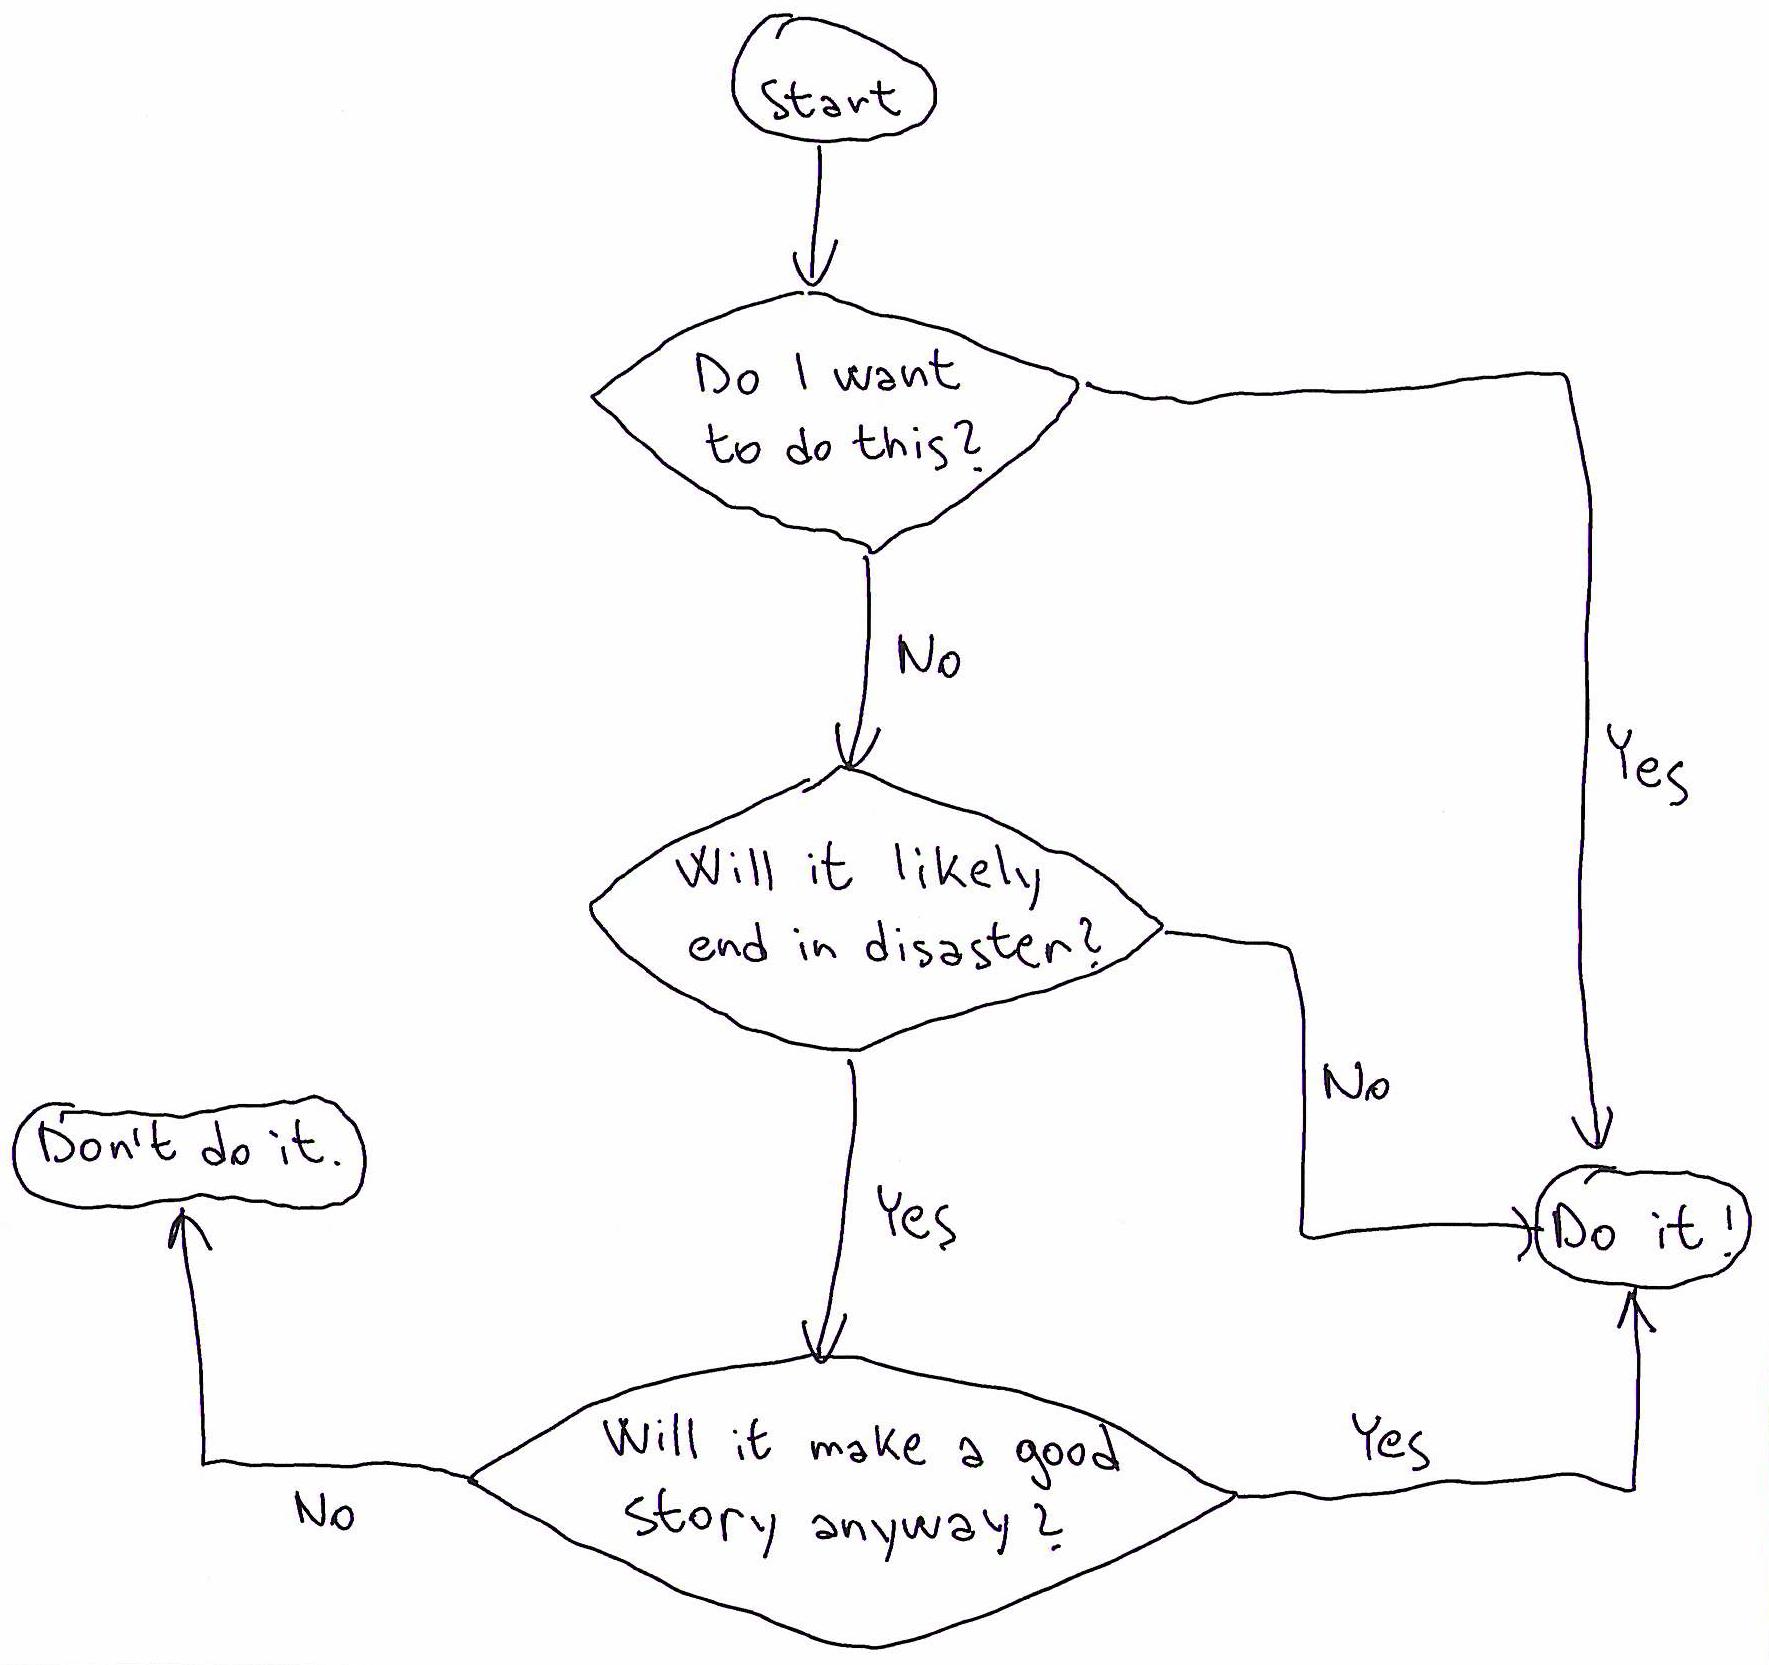 Start
Do I want
to do this?
No
Yes
Will it likely
end in disaster?
No
Don't do it.
Yes
Do it!
Will it make a good
story anyway?
Yes
No